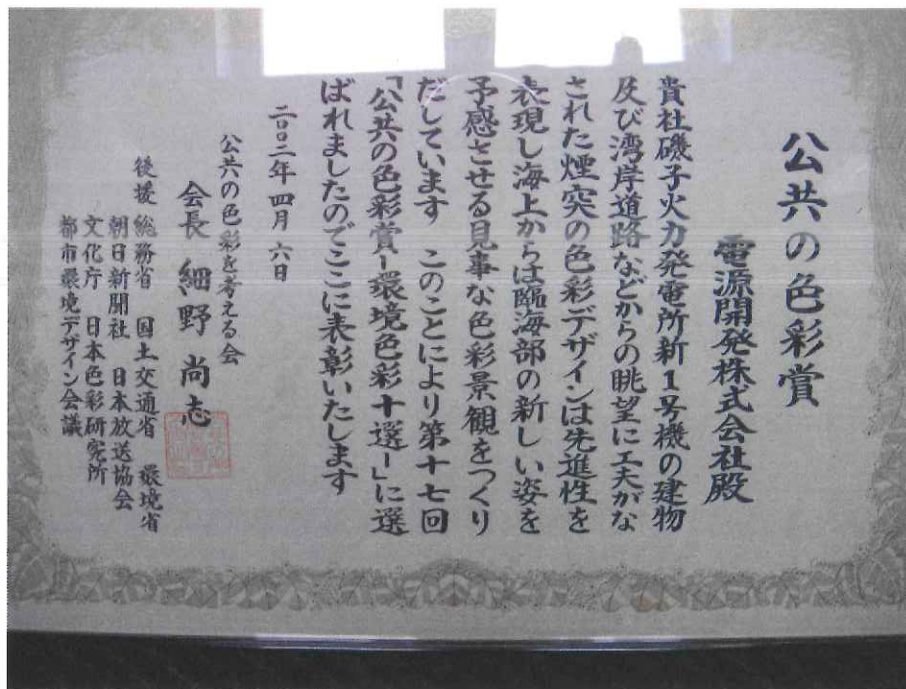 公共の色彩賞
電源開発株式会社殿
貴社磯子火力発電所新1号機の建物
及び湾岸道路などからの眺望に工夫がな
された煙突の色彩デザインは先進性を
表現し海上からは臨海部の新しい姿を
予感させる見事な色彩景観をつくり
だしています このことにより第十七回
「公共の色彩賞ー環境色彩十選ー」に選
ばれましたのでここに表彰いたします
二〇〇二年四月六日
公共の色彩を考える会
会長 細野尚志
後援 総務省 国土交通省 環境省
朝日新聞社 日本放送協会
文化庁 日本色彩研究所
都市環境デザイン会議